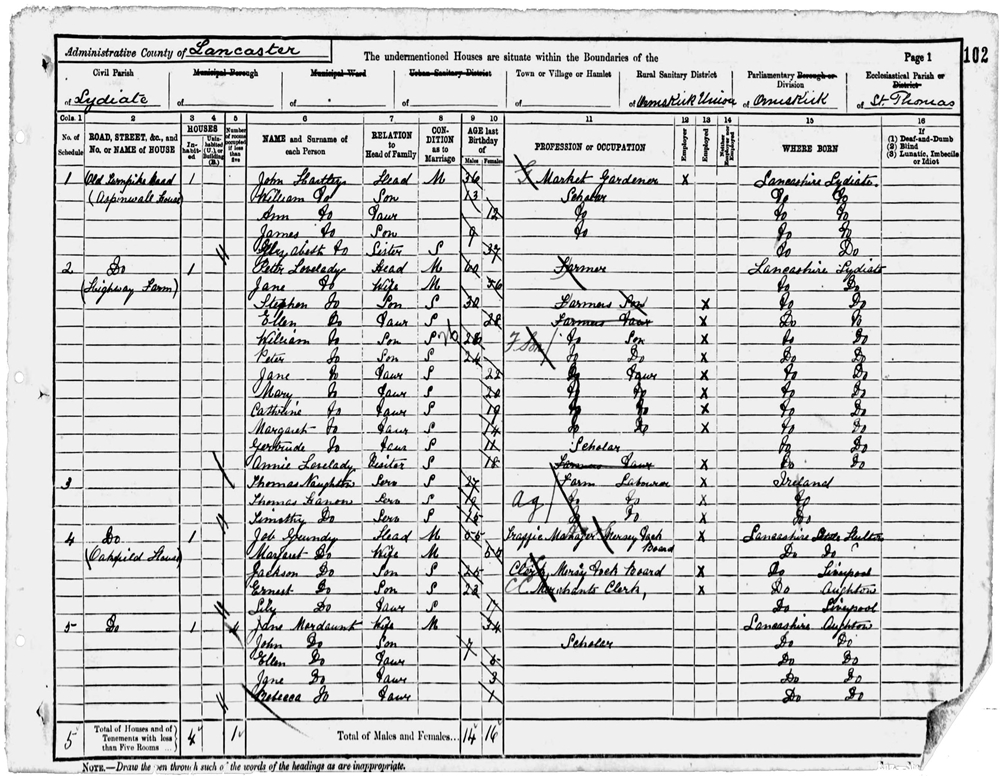 Administrative County of Lancaster The undermentioned Houses are situate within the Boundaries of the Page 1 102
Civil Parish Municipal Borough Municipal Ward Urban Sanitary District Town or Village or Hamlet Rural Sanitary District Parliamentary Borough or Division Ecclesiastical Parish or District
of Lydiate of of of of of Ormskirk Union of Ormskirk of St Thomas
Cols. 1 2 3 4 5 6 7 8 9 10 11 12 13 14 15 16
No. of Schedule ROAD, STREET, &c., and No. or NAME of HOUSE HOUSES Inhabited Uninhabited (U.) or Building (B.) Number of rooms occupied if less than five NAME and Surname of each Person RELATION to Head of Family CONDITION as to Marriage AGE last Birthday of Males Females PROFESSION or OCCUPATION Employer Employed Neither Employer nor Employed WHERE BORN If (1) Deaf-and-Dumb (2) Blind (3) Lunatic, Imbecile or Idiot
1 Old Turnpike Road 1 John Hartley Head M 36 Market Gardener X Lancashire Lydiate
(Aspinwall House) William Do Son 13 Scholar Do Do
Ann Do Daur 12 Do Do Do
James Do Son 9 Do Do Do
Elizabeth Do Sister S 37 Do Do
2 Do 1 Peter Lovelady Head M 60 Farmer Lancashire Lydiate
(Highway Farm) Jane Do Wife M 56 Do Do
Stephen Do Son S 30 Farmers Son X Do Do
Ellen Do Daur S 28 Farmers Daur X Do Do
William Do Son S 26 Do Son X Do Do
Peter Do Son S 24 Do Do X Do Do
Jane Do Daur S 22 Do Daur X Do Do
Mary Do Daur S 20 Do Do X Do Do
Cathrine Do Daur S 19 Do Do X Do Do
Margaret Do Daur S 14 Do Do X Do Do
Gertrude Do Daur S 11 Scholar Do Do
Annie Lovelady Visitor S 18 Farmers Daur X Do Do
3 Thomas Naughton Serv S 27 Farm Labourer X Ireland
Thomas Serv S 19 Ag Do Do X Do
Timothy Do Serv S Do Do X Do
4 Do 1 Job Grundy Head M 55 Traffic Manager Mersey Dock Board X Lancashire
(Oakfield House) Margaret Do Wife M Do Do
Jackson Do Son S 25 Clerk, Mersey Dock Board X Do Liverpool
Ernest Do Son S Merchants Clerk, X Do Aughton
Lily Do Daur S 17 Do Liverpool
5 Do 1 4 Jane Mordaunt Wife M 34 Lancashire Aughton
John Do Son 7 Scholar Do Do
Ellen Do Daur 5 Do Do
Jane Do Daur 3 Do Do
Rebecca Do Daur 1 Do Do
5 Total of Houses and of Tenements with less than Five Rooms 4 1 Total of Males and Females... 14 16
NOTE.—Draw the pen through such of the words of the headings as are inappropriate.